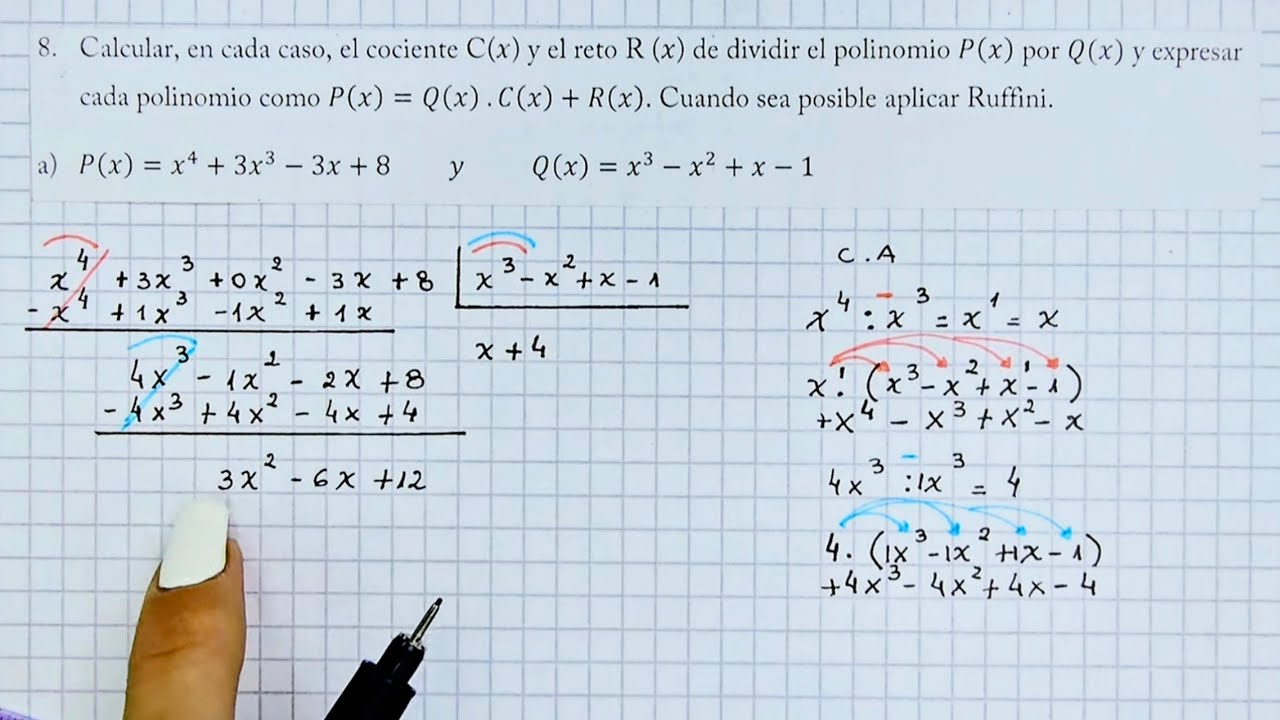 8. Calcular, en cada caso, el cociente C(x) y el reto R (x) de dividir el polinomio P(x) por Q(x) y expresar
cada polinomio como P(x) = Q(x) . C(x) + R(x). Cuando sea posible aplicar Ruffini.
a) P(x) = x⁴ + 3x³ − 3x + 8 y Q(x) = x³ − x² + x − 1
x⁴ + 3x³ + 0x² - 3x + 8 | x³ - x² + x - 1
- x⁴ + 1x³ - 1x² + 1x
x + 4
4x³ - 1x² - 2x + 8
- 4x³ + 4x² - 4x + 4
3x² - 6x + 12
C.A
x⁴ : x³ = x¹ = x
-
x¹. (x³ - x² + x¹ - 1)
+x⁴ - x³ + x² - x
4x³ : 1x³ = 4
-
4. (1x³ - 1x² + 1x - 1)
+4x³ - 4x² + 4x - 4